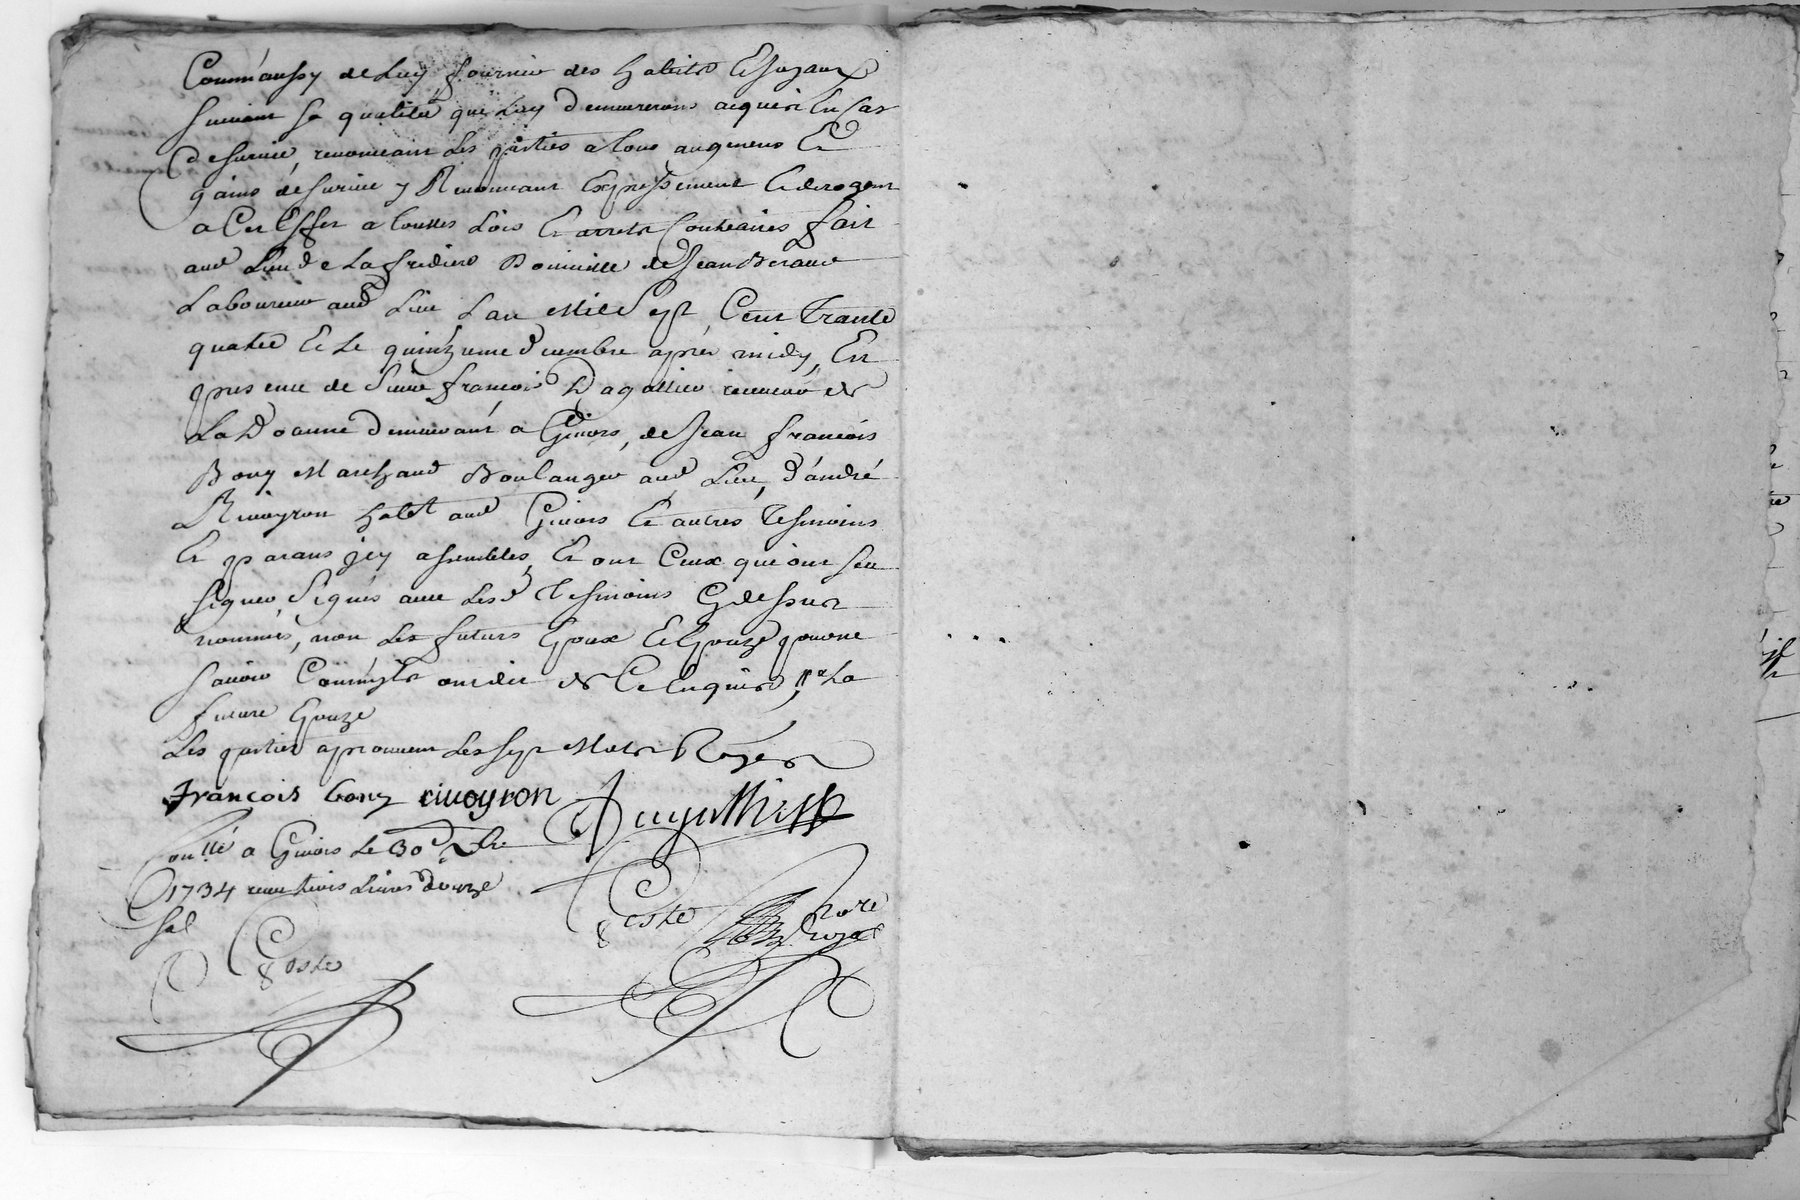 Comm'aussy de luy fournir des habits & joyaux
suivant sa qualité que luy demeureront acquis en cas
de survie, renonceant les parties a tous augmens Et
gains de survie y Renonceant Expressement & derogent
a Cet Effet a touttes Loix Et arrets Contraires fait
aud Lieu de La fredière Domicille de Jean Beraud
Laboureur aud Lieu L'an Mil sept Cent Trante
quatre Et le quinzieme decembre après midy, En
presence de Sieur françois Dagallier receveur de
La Doanne demeurant a Givors, de Jean françois
Bony Marchand Boulanger aud Lieu, d'andré
Rivoyron habt aud Givors Et autres Tesmoins
Et parans jcy assemblés, Et ont Ceux qui ont sçu
signer, Signés avec lesd Tesmoins Cydessus
nommés, non les futurs Epoux Et Epouze pour ne
savoir Comm'ils ont dit de Ce Enquis, // La
future Epouze
Les parties aprouvent les sept Mots Rayés
françois bony rivoyron
Dagallier
Conllé a Givors le 30e xbre
1734 receu trois Livres douze
sol
Coste
Coste
nore
Royal